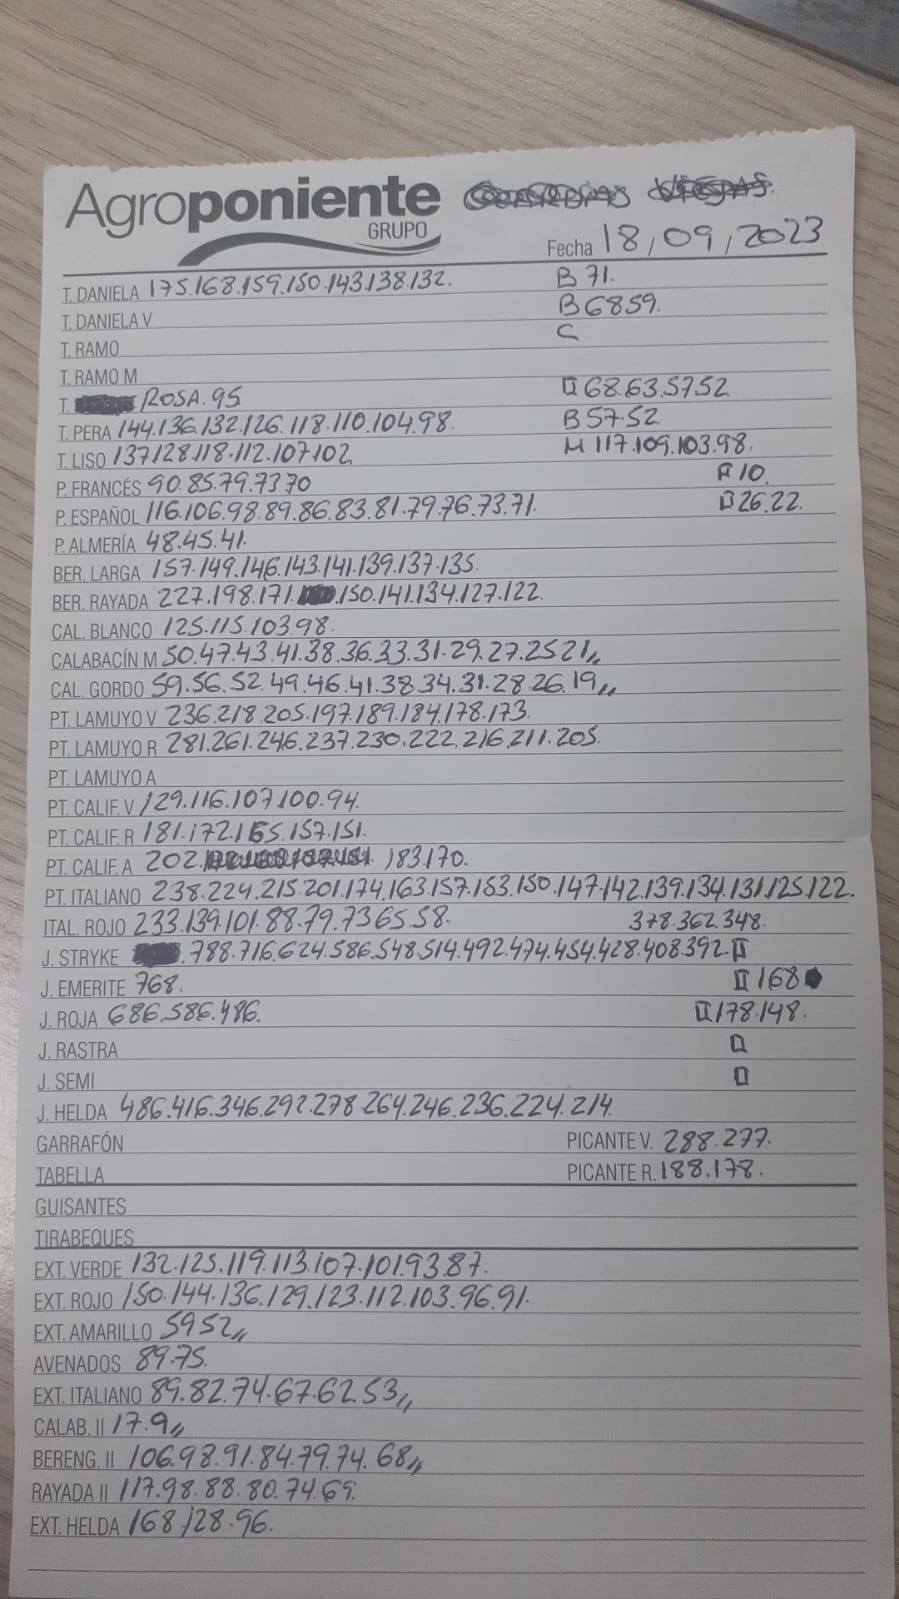 Agroponiente
GRUPO
Fecha 18/09/2023
T. DANIELA 175.168.159.150.143.138.132. B 71.
T. DANIELA V B 6859.
T. RAMO C
T. RAMO M
T. ROSA. 95 II 68.63.5752
T. PERA 144.136.132.126.118.110.104.98. B 57.52
T. LISO 137128.118.112.107102 M 117.109.103.98.
P. FRANCÉS 90.85.79.7370 R 10.
P. ESPAÑOL 116.106.98.89.86.83.81.79.76.73.71. II 26.22.
P. ALMERÍA 48.45.41.
BER. LARGA 157.149.146.143.141.139.137.135.
BER. RAYADA 227.198.171. .150.141.134.127.122.
CAL. BLANCO 125.115.10398.
CALABACÍN M 50.47.43.41.38.36.33.31.29.27.2521,,
CAL. GORDO 59.56.52.49.46.41.38.34.31.28.26.19,,
PT. LAMUYO V 236.218.205.197.189.184.178.173.
PT. LAMUYO R 281.261.246.237.230.222.216.211.205.
PT. LAMUYO A
PT. CALIF. V 129.116.107100.94.
PT. CALIF. R 181.172.165.157.151.
PT. CALIF. A 202. 183.170.
PT. ITALIANO 238.224.215.201.174.163.157.153.150.147.142.139.134.131.125.122.
ITAL. ROJO 233.139.101.88.79.736558. 378.362.348.
J. STRYKE .788.716.624.586.548.514.492.474.454.428.408.392. II
J. EMERITE 768. II 168
J. ROJA 686.586.486. II 178.148.
J. RASTRA II
J. SEMI II
J. HELDA 486.416.346.292.278.264.246.236.224.214.
GARRAFÓN PICANTE V. 288.277.
TABELLA PICANTE R. 188.178.
GUISANTES
TIRABEQUES
EXT. VERDE 132.125.119.113.107.101.93.87.
EXT. ROJO 150.144.136.129.123.112.103.96.91.
EXT. AMARILLO 5952,,
AVENADOS 89.75.
EXT. ITALIANO 89.82.74.67.62.53,,
CALAB. II 17.9,,
BERENG. II 106.98.91.84.79.74.68,,
RAYADA II 117.98.88.80.74.69.
EXT. HELDA 168.128.96.